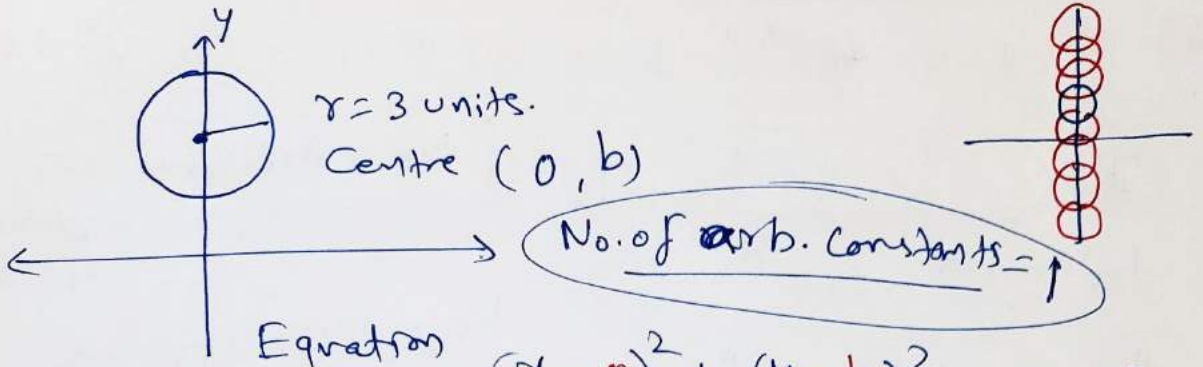 y
r = 3 units.
Centre (0, b)
No. of arb. constants = 1
Equation